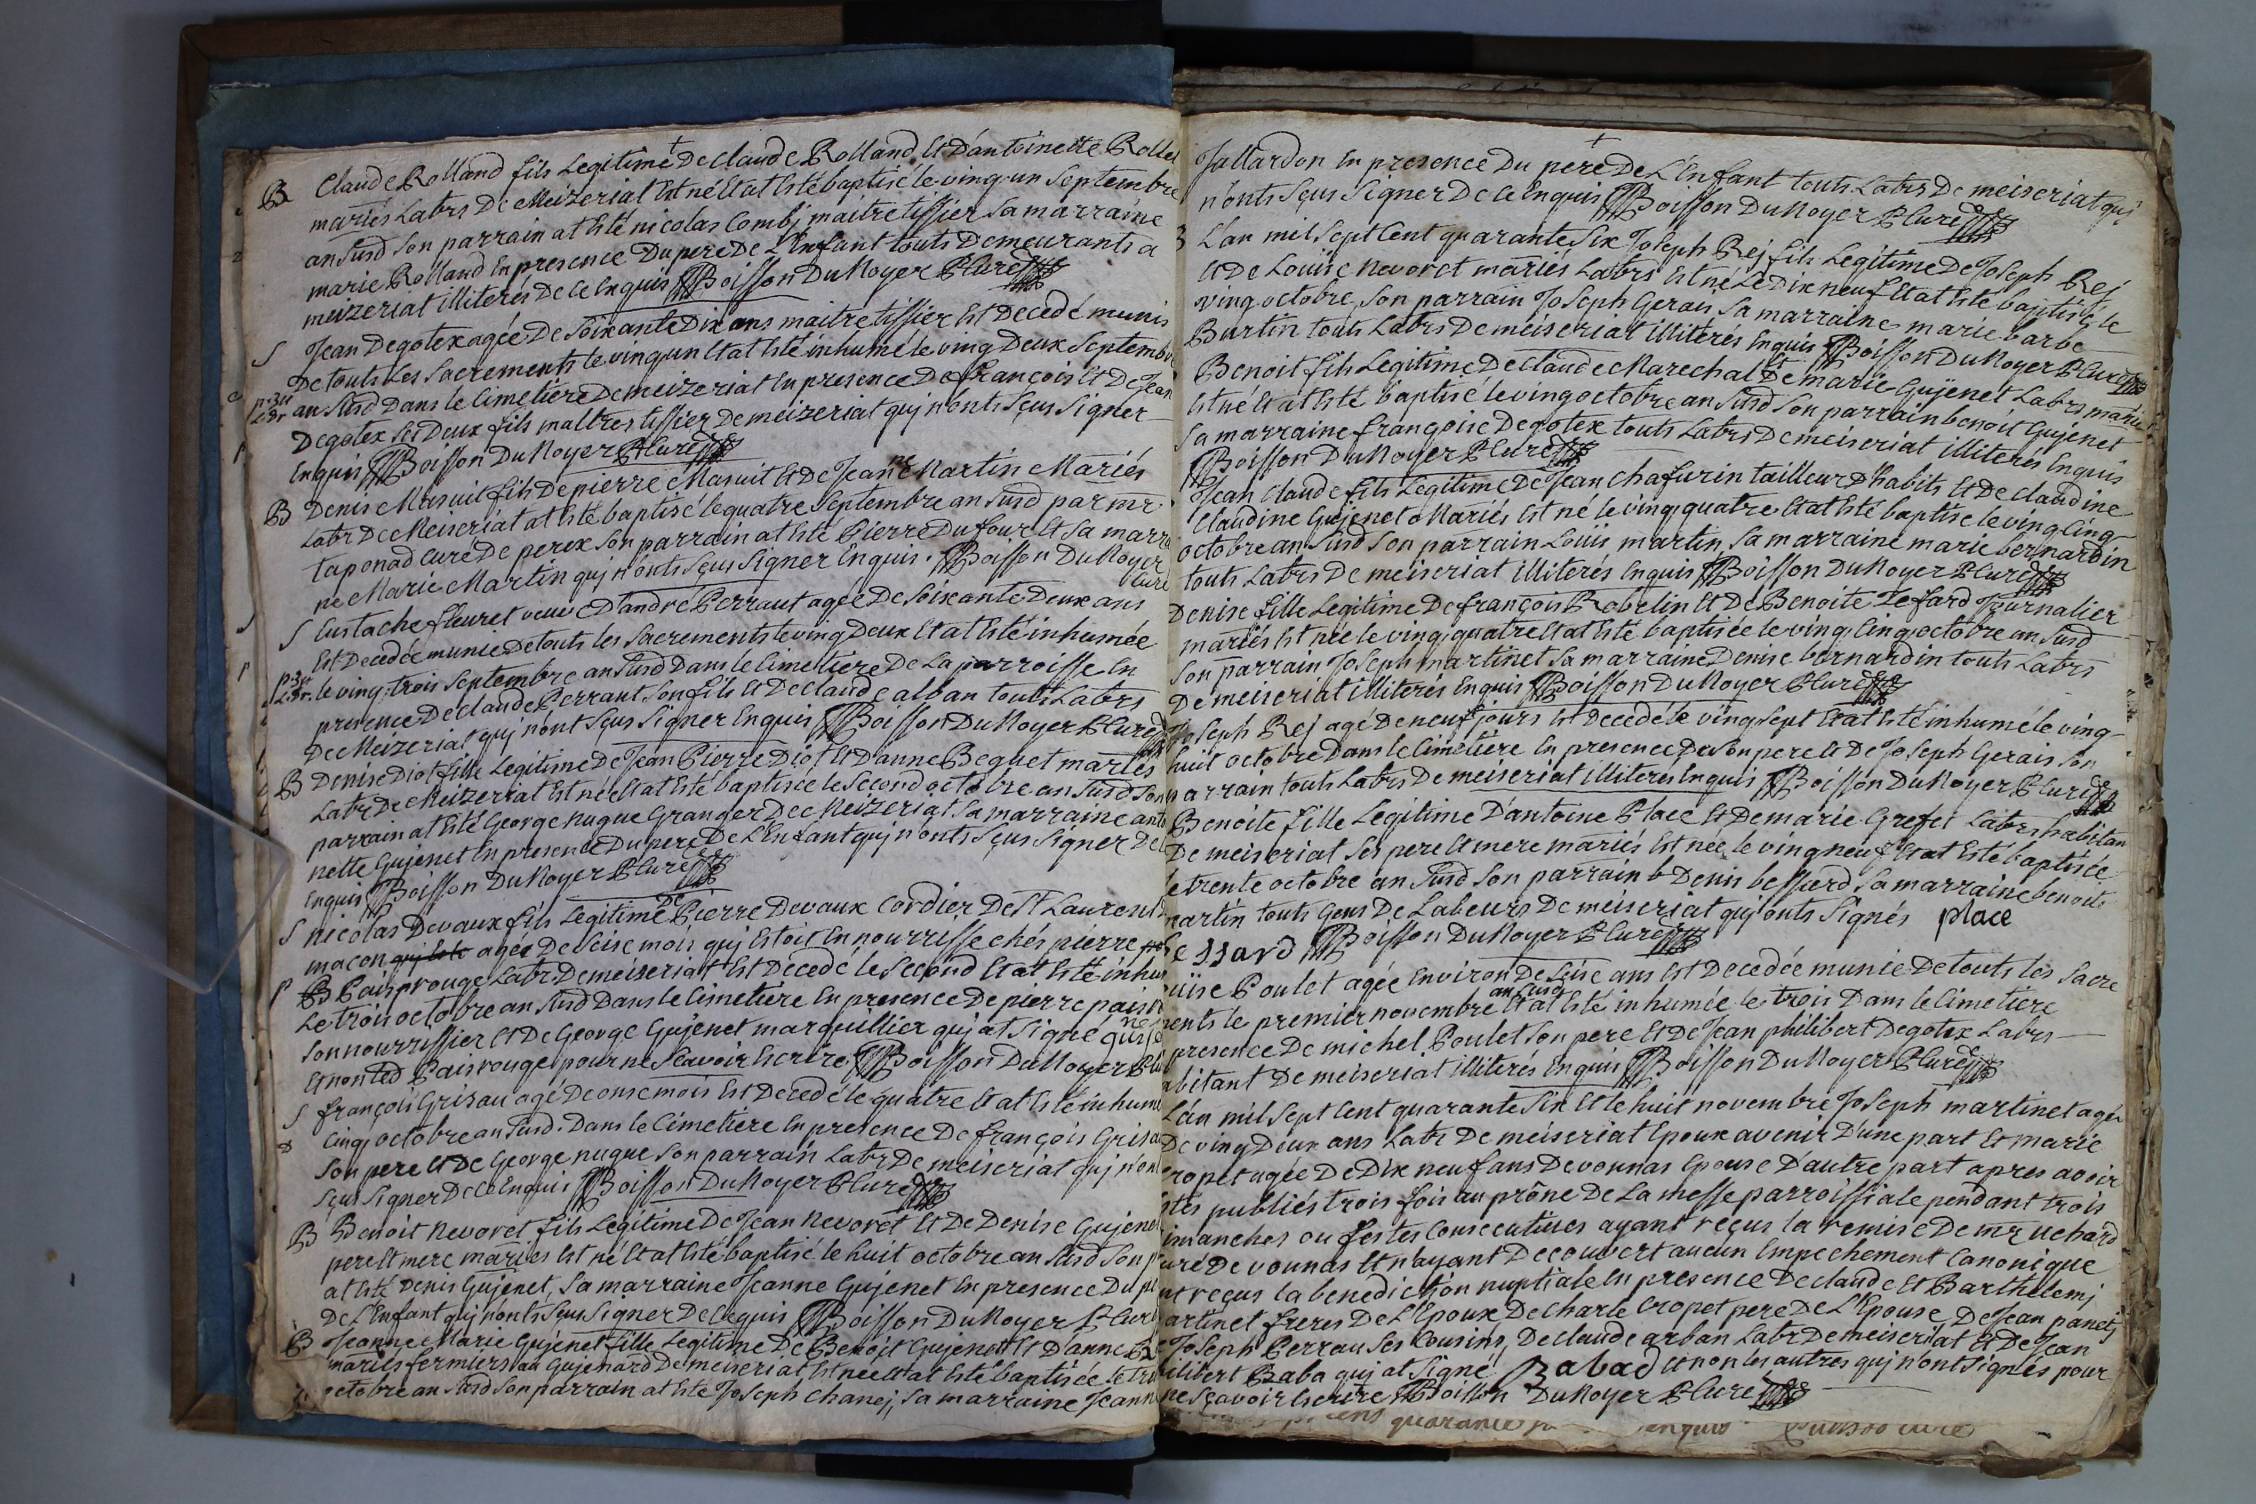 B Claude Rolland fils Legitime De Claude Rolland Et D'antoinette Rollet
mariés Labrs De Meizeriat Est né Et at Esté baptisé le ving un Septembre
an Susd Son parrain at Esté nicolas Combj maitre tissier Sa marraine
marie Rolland En presence Du pere De L'Enfant touts Demeurants a
meizeriat illiterés De ce Enquis Boisson Du Noyer P Curé
S Jean Degotex agée De Soixante Dix ans maitre tissier Est Decedé munis
De touts Les Sacrements le ving un Et at Esté inhumé le ving Deux Septembre
an Susd Dans le Cimetiere De meizeriat En presence De françois Et De Jean
Degotex Ses Deux fils maîtres tissier De meizeriat quj n'onts Sçus Signer
Enquis Boisson Du Noyer P Curé
B Denis Masuit fils De pierre Masuit Et De Jeanne Martin Mariés
Labr De Meiseriat at Esté baptisé le quatre Septembre an Susd par mr
taponad Curé De perex Son parrain at Esté Pierre Dufour Et Sa marrai
ne Marie Martin quj n'onts Sçus Signer Enquis. Boisson Du Noyer
Curé
S Eustache fleuret veuve D'andre Perraut agée De Soixante Deux ans
Est Decedée munie De touts les Sacrements le ving Deux Et at Esté inhumée
le ving-trois Septembre an Susd Dans le Cimetiere De La parroisse En
presence De Claude Perraut Son fils Et De Claude alban touts Labrs
De Meizeriat quj n'ont Sçus Signer Enquis Boisson Du Noyer P Curé
B Denise Diot fille Legitime De Jean Pierre Diot Et D'anne Beguet mariés
Labr De Meizeriat Est née Et at Esté baptisée le Second octobre an Susd Son
parrain at Esté George nugue Granger De Meizeriat Sa marraine antoi
nette Gujenet En presence Du pere De L'Enfant quj n'onts Sçus Signer De ce
Enquis Boisson Du Noyer P Curé
S nicolas Devaux fils Legitime De Pierre Devaux Cordier De St Laurent
macon agée De Seise mois quj Estoit En nourrisse chés pierre
Pairprouge Labr De meiseriat Est Decedé le Second Et at Esté inhu
Le trois octobre an Susd Dans le Cimetiere En presence De pierre
Son nourrissier Et De George Gujenet marguillier quj at Signé
Et non led Pairouge pour ne Scavoir Escrire Boisson Du Noyer P
S françois Grisau agé De onse mois Est Decedé le quatre Et at Esté inhumé
Cinq octobre an Susd. Dans le Cimetiere En presence De françois Grisau
Son pere Et De George nugue Son parrain Labr De meiseriat quj n'ont
Sçus Signer De ce Enquis Boisson Du Noyer P Curé
B Benoit Nevoret fils Legitime De Jean Nevoret Et De Denise Gujenet
pere Et mere mariés Est né Et at Esté baptisé le huit octobre an Susd Son
at Esté Denis Gujenet, Sa marraine Jeanne Gujenet En presence Du
De L'Enfant quj n'onts Sçus Signer De ce Enquis Boisson Du Noyer P Curé
B Jeanne Marie Gujenet fille Legitime De Benoit Gujenet Et D'anne
mariés fermiers au Gujenard De meiseriat, Est née Et at Esté baptisée Le
octobre an Susd Son parrain at Esté Joseph Chanej, Sa marraine Jeanne
Jallardon En presence Du pere De L'Enfant touts Labrs De meiseriat quj
n'onts Sçus Signer De ce Enquis Boisson Du Noyer P Curé
L'an mil Sept Cent quarante Six Joseph Rej fils Legitime De Joseph Rej
Et De Louise Nevoret mariés Labrs Est né Le Dix neuf Et at Esté baptisé le
ving octobre, Son parrain Joseph Gerais Sa marraine marie barbe
Burtin touts Labrs De meiseriat illiterés Enquis Boisson Du Noyer P Curé
Benoit fils Legitime De Claude Marechal Et De marie Gujenet Labrs mariés
Est né Et at Esté baptisé le ving octobre an Susd Son parrain benoit Gujenet
Sa marraine françoise Degotex touts Labrs De meiseriat illiterés Enquis
Boisson Du Noyer P Curé
Jean Claude fils Legitime De Jean Chafurin tailleur D'habits Et De Claudine
Claudine Gujenet Mariés Est né le ving quatre Et at Esté baptise le ving Cinq
octobre an Susd Son parrain Loüis martin, Sa marraine marie bernardin
touts Labrs De meiseriat illiterés Enquis Boisson Du Noyer P Curé
Denise fille Legitime De françois Robelin Et De Benoite Jefard Journalier
mariés Est née le ving quatre Et at Esté baptisée le ving Cinq octobre an Susd
Son parrain Joseph martinet Sa marraine Denise bernardin touts Labrs
De meiseriat illiterés Enquis Boisson Du Noyer P Curé
Joseph Rej agé De neuf jours Est Decedé le ving Sept Et at Esté inhumé le ving-
huit octobre Dans le Cimetiere En presence De Son pere Et De Joseph Gerais Son
parrain touts Labrs De meiseriat illiterés Enquis Boisson Du Noyer P Curé
Benoite fille Legitime D'antoine Place Et De marie Grefet Labrs habitan
De meiseriat Ses pere Et mere mariés Est née le ving neuf Et at Esté baptisée
le trente octobre an Susd Son parrain Denis bessard Sa marraine benoite
martin touts Gens De Labeurs De meiseriat quj onts Signés place
Bessard Boisson Du Noyer P Curé
Loüise Poulet agée Environ De Seise ans Est Decedée munie De touts les Sacre
ments le premier novembre an Susd Et at Esté inhumée le trois Dans le Cimetiere
presence De michel Poulet Son pere Et De Jean philibert Degotex Labrs
habitant De meiseriat illiterés Enquis Boisson Du Noyer P Curé
L'an mil Sept Cent quarante Six Et le huit novembre Joseph martinet agée
De ving Deux ans Labr De meiseriat Epoux avenir D'une part Et marie
Cropet agée De Dix neuf ans De vonnas Epouse D'autre part apres avoir
Estés publiés trois fois au prône De La messe parroissiale pendant trois
Dimanches ou festes Consecutives ayant reçus la remise De mr uchard
Curé De vonnas Et n'ayant Decouvert aucun Empechement Canonique
ont reçus la benediction nuptiale En presence De Claude Et Barthelemj
martinet freres De L'Epoux De Charle Cropet pere De L'Epouse, De Jean panetj
Joseph Perrau Ses Cousins, De Claude arban Labr De meiseriat Et De Jean
philibert Baba quj at Signé Babad Et non les autres quj n'ont Signés pour
ne Sçavoir Escrire Boisson Du Noyer P Curé